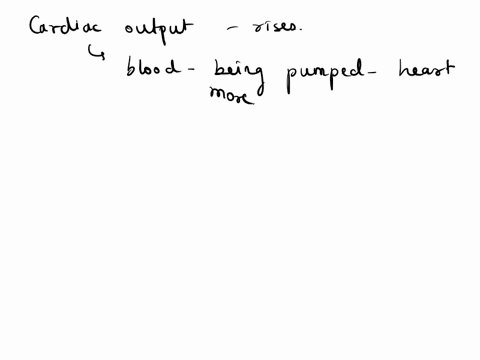 Cardiac output - rises.
↳ blood - being pumped - heart
more